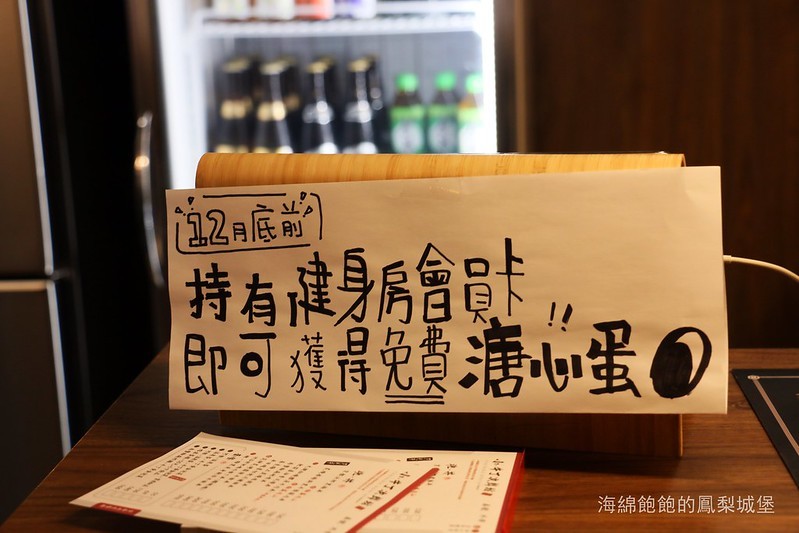 12月底前
持有健身房會員卡
即可獲得免費溏心蛋
海綿飽飽的鳳梨城堡